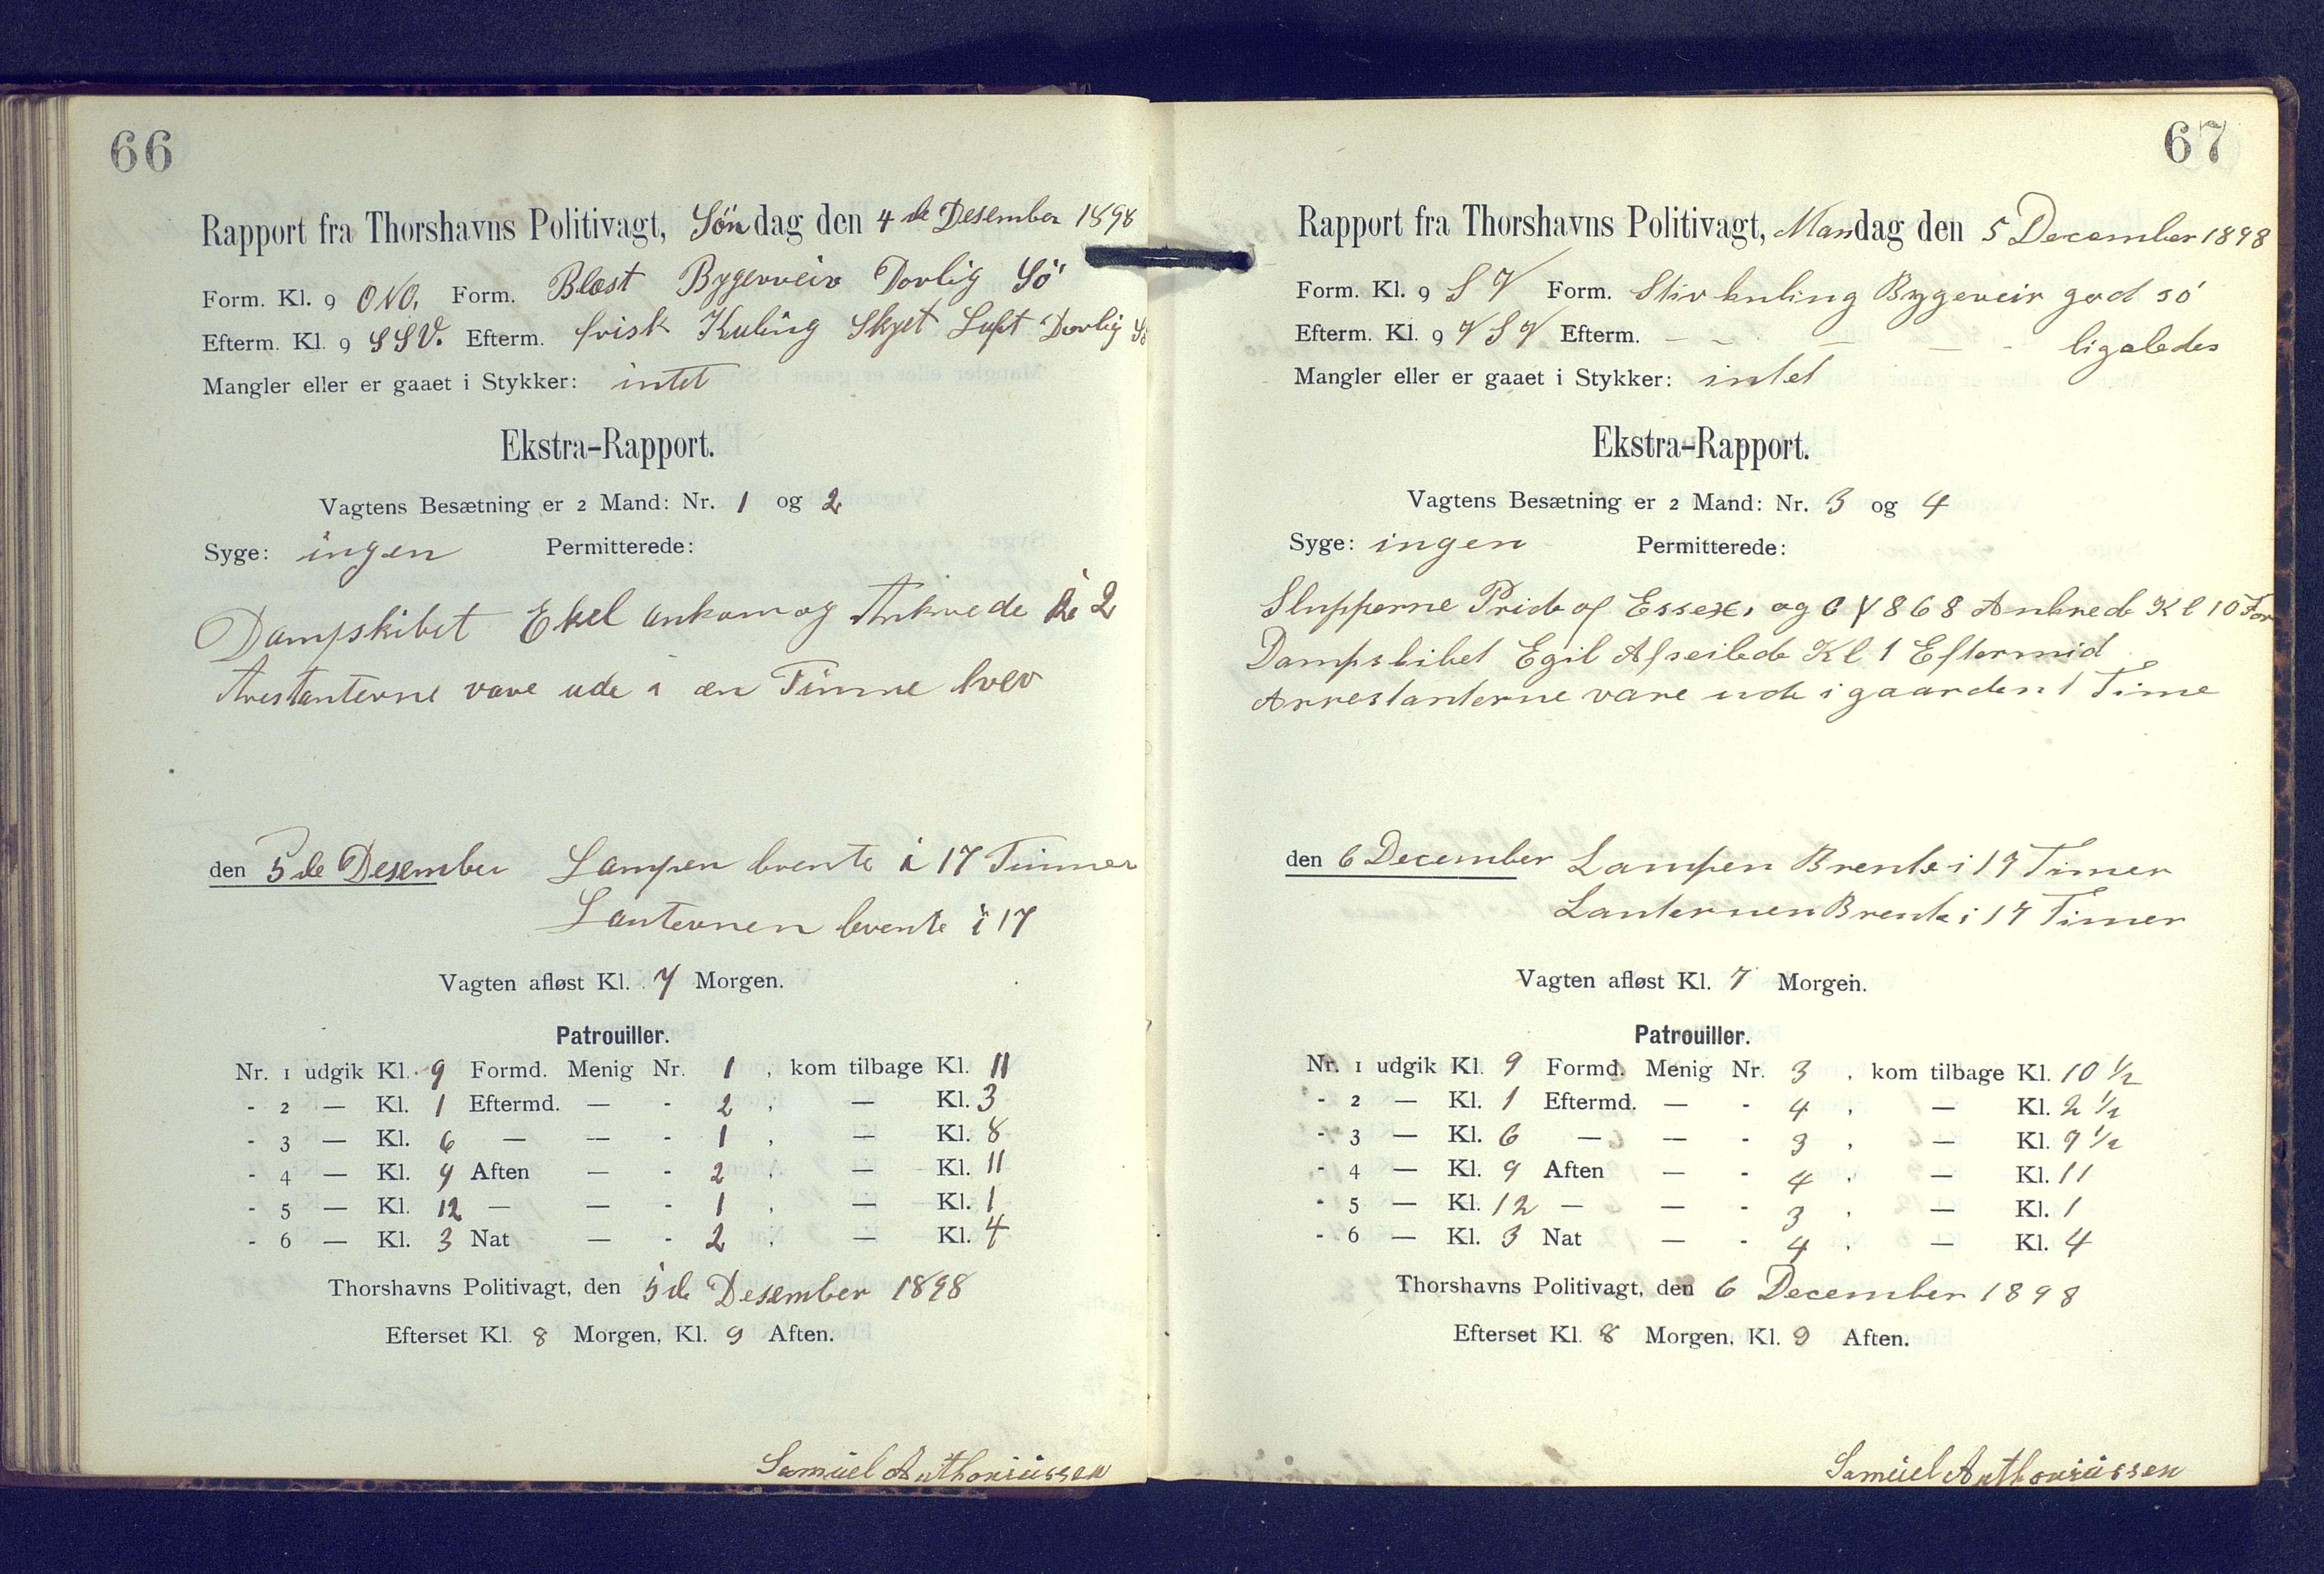 66
Rapport fra Thorshavns Politivagt, Søndag den 4 de Desember 1898
Form. Kl. 9 ONO. Form. Blæst Bygerveir Dorlig Sö
Efterm. Kl. 9 SSV. Efterm. frisk Kuling Skyet Luft Dorlig Sö
Mangler eller er gaaet i Stykker: intet
Ekstra-Rapport.
Vagtens Besætning er 2 Mand: Nr. 1 og 2
Syge: ingen Permitterede:
Dampskibet Ekel ankom og Ankrede 2
Arestanterne vare ude i en Timme hver
den 5 de Desember Lampen brente i 17 Timmer
Lanternen brente i 17
Vagten afløst Kl. 7 Morgen.
Patrouiller.
Nr. 1 udgik Kl. 9 Formd. Menig Nr. 1, kom tilbage Kl. 11
- 2 — Kl. 1 Eftermd. — - 2, — Kl. 3
- 3 — Kl. 6 — — - 1, — Kl. 8
- 4 — Kl. 9 Aften — - 2, — Kl. 11
- 5 — Kl. 12 — — - 1, — Kl. 1
- 6 — Kl. 3 Nat — - 2, — Kl. 4
Thorshavns Politivagt, den 5 de Desember 1898
Efterset Kl. 8 Morgen, Kl. 9 Aften.
Samüel Anthoniüssen
67
Rapport fra Thorshavns Politivagt, Mandag den 5 December 1898
Form. Kl. 9 SV Form. Stiv kuling Bygeveir god sö
Efterm. Kl. 9 VSV Efterm. — — — — - ligeledes
Mangler eller er gaaet i Stykker: intet
Ekstra-Rapport.
Vagtens Besætning er 2 Mand: Nr. 3 og 4
Syge: ingen Permitterede:
Slupperne Pride of Essex, og 868 Ankrede Kl 10 For
Dampskibet Egil Afseilede Kl 1 Eftermid
Arrestanterne vare ude i gaarden 1 Time
den 6 December Lampen Brente i 17 Timer
Lanternen Brente i 17 Timer
Vagten afløst Kl. 7 Morgen.
Patrouiller.
Nr. 1 udgik Kl. 9 Formd. Menig Nr. 3, kom tilbage Kl. 10 ½
- 2 — Kl. 1 Eftermd. — - 4, — Kl. 2 ½
- 3 — Kl. 6 — — - 3, — Kl. 7 ½
- 4 — Kl. 9 Aften — - 4, — Kl. 11
- 5 — Kl. 12 — — - 3, — Kl. 1
- 6 — Kl. 3 Nat — - 4, — Kl. 4
Thorshavns Politivagt, den 6 December 1898
Efterset Kl. 8 Morgen, Kl. 9 Aften.
Samüel Anthoniüssen